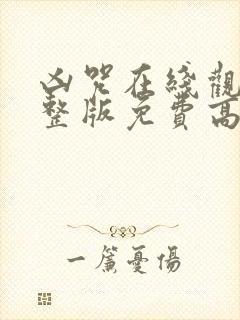 凶咒在綫觀
整版免費高
一簾憂傷